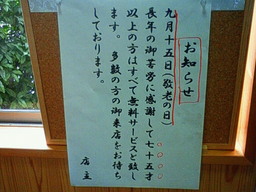 お知らせ
九月十五日(敬老の日)
長年の御苦労に感謝して七十五才
以上の方はすべて無料サービスと致し
ます。多数の方の御来店をお待ち
しております。
店主